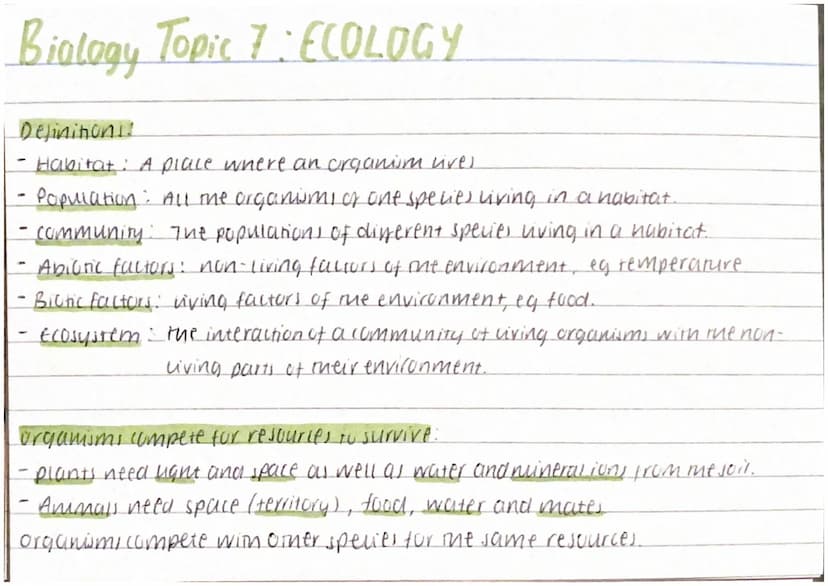 Biology Topic 7: ECOLOGY
Definitions:
- Habitat: A place where an organism lives
- Population: All the organisms of one species living in a habitat.
- community: The populations of different species living in a habitat.
- Abiotic factors: non-living factors of the environment, eg temperature
- Biotic factors: living factors of the environment, eg food.
- Ecosystem: the interaction of a community of living organisms with the non-
living parts of their environment.
organisms compete for resources to survive:
- plants need light and space as well as water and mineral ions from the soil.
- Animals need space (territory), food, water and mates
organisms compete with other species for the same resources.